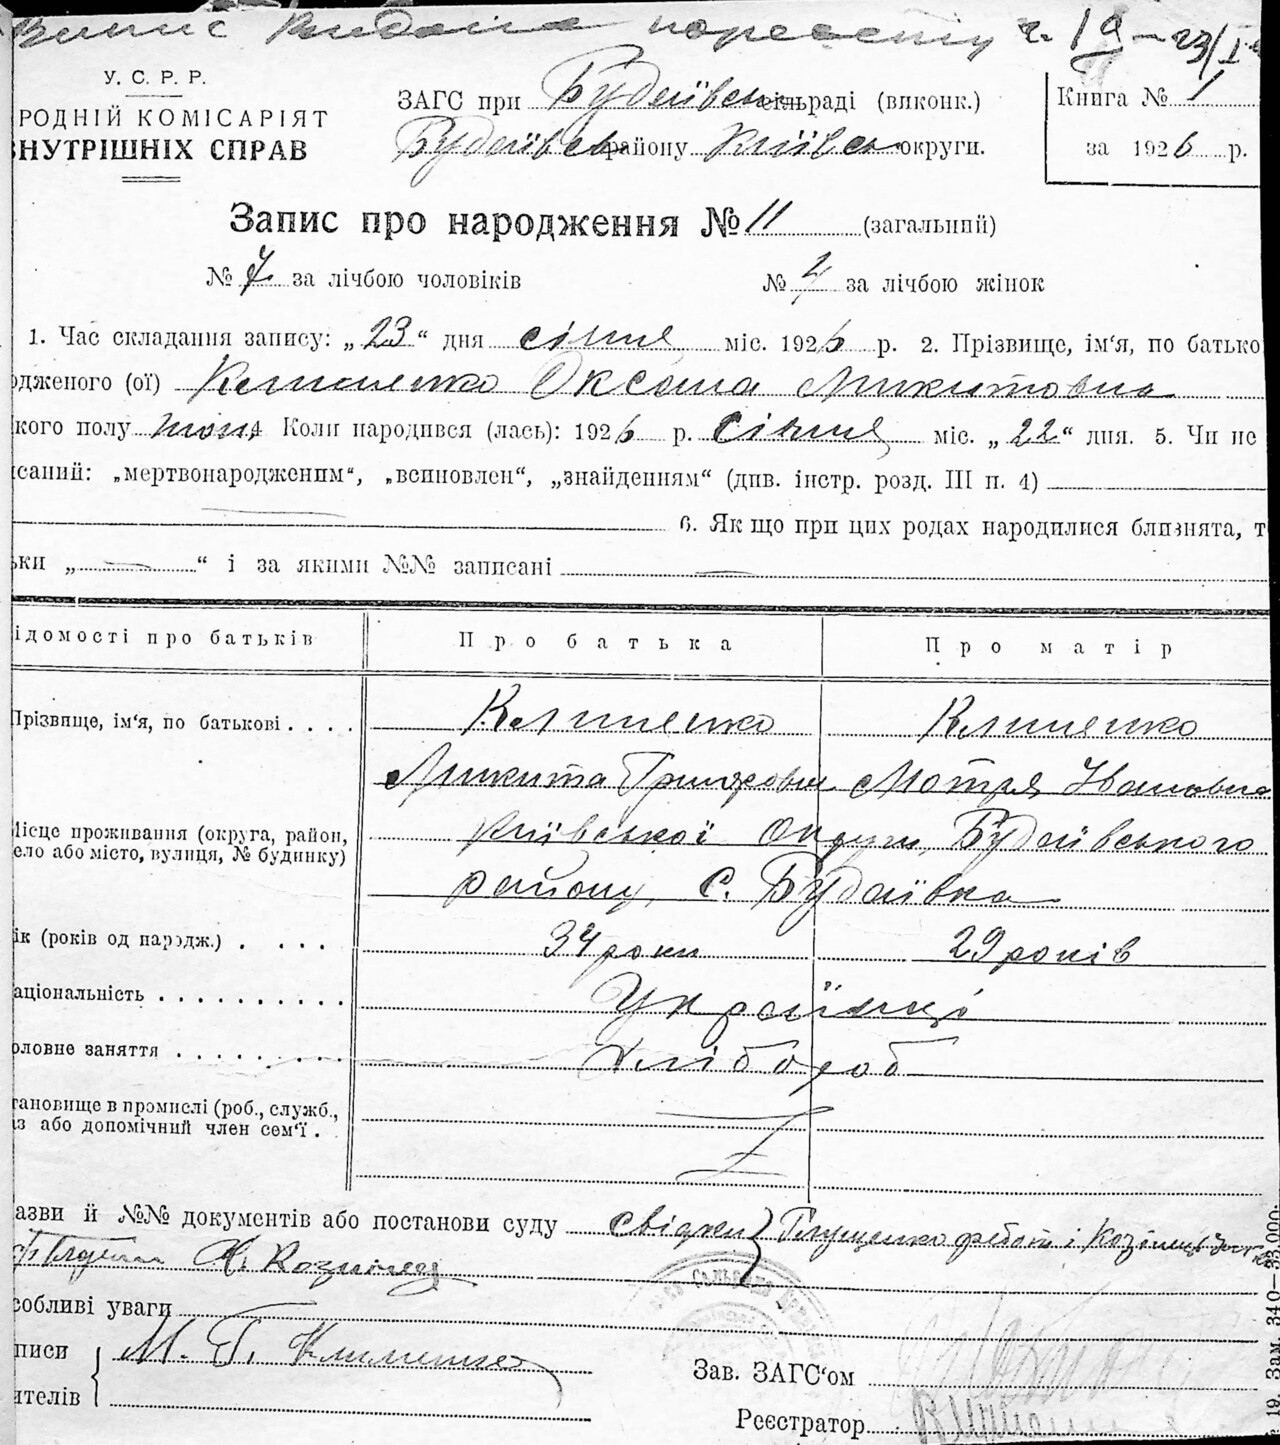 Випис видана
У. С. Р. Р.
РОДНІЙ КОМІСАРІЯТ
ВНУТРІШНІХ СПРАВ
ЗАГС при Будаївськ сільраді (виконк.)
Будаївськ району Київськ округи.
Книга № 1
за 1926 р.
Запис про народження № 11 (загальний)
№ 7 за лічбою чоловіків № 4 за лічбою жінок
1. Час складання запису: „23“ дня січня міс. 1926 р. 2. Прізвище, ім'я, по батько
одженого (ої) Клименко Оксана Микитовна
кого полу жон. 4 Коли народився (лась): 1926 р. Січня міс. „22“ дня. 5. Чи не
исаний: „мертвонародженим“, „всиновлен“, „знайденням“ (див. інстр. розд. III п. 4)
6. Як що при цих родах народилися близнята, т
ьки „ — “ і за якими №№ записані —
ідомості про батьків Про батька Про матір
Прізвище, ім'я, по батькові . . . . Клименко Клименко
Микита Григорович Мотря Івановна
Місце проживання (округа, район,
село або місто, вулиця, № будинку)
Київської Округи, Будаївського
району, С. Будаївка
ік (років од народж.) . . . . 34 роки 29 років
аціональність . . . . . . . . . . Українці
оловне заняття . . . . . . . . . Хлібороб
тановище в промислі (роб., служб.,
аз або допоміжний член сем'ї .
азви й №№ документів або постанови суду свідки Глущенко і Козінець
Козинец
собливі уваги
М. Г. Клименко
писи
ителів
Зав. ЗАГС'ом
Реєстратор
19. Зам. 340—33.000.